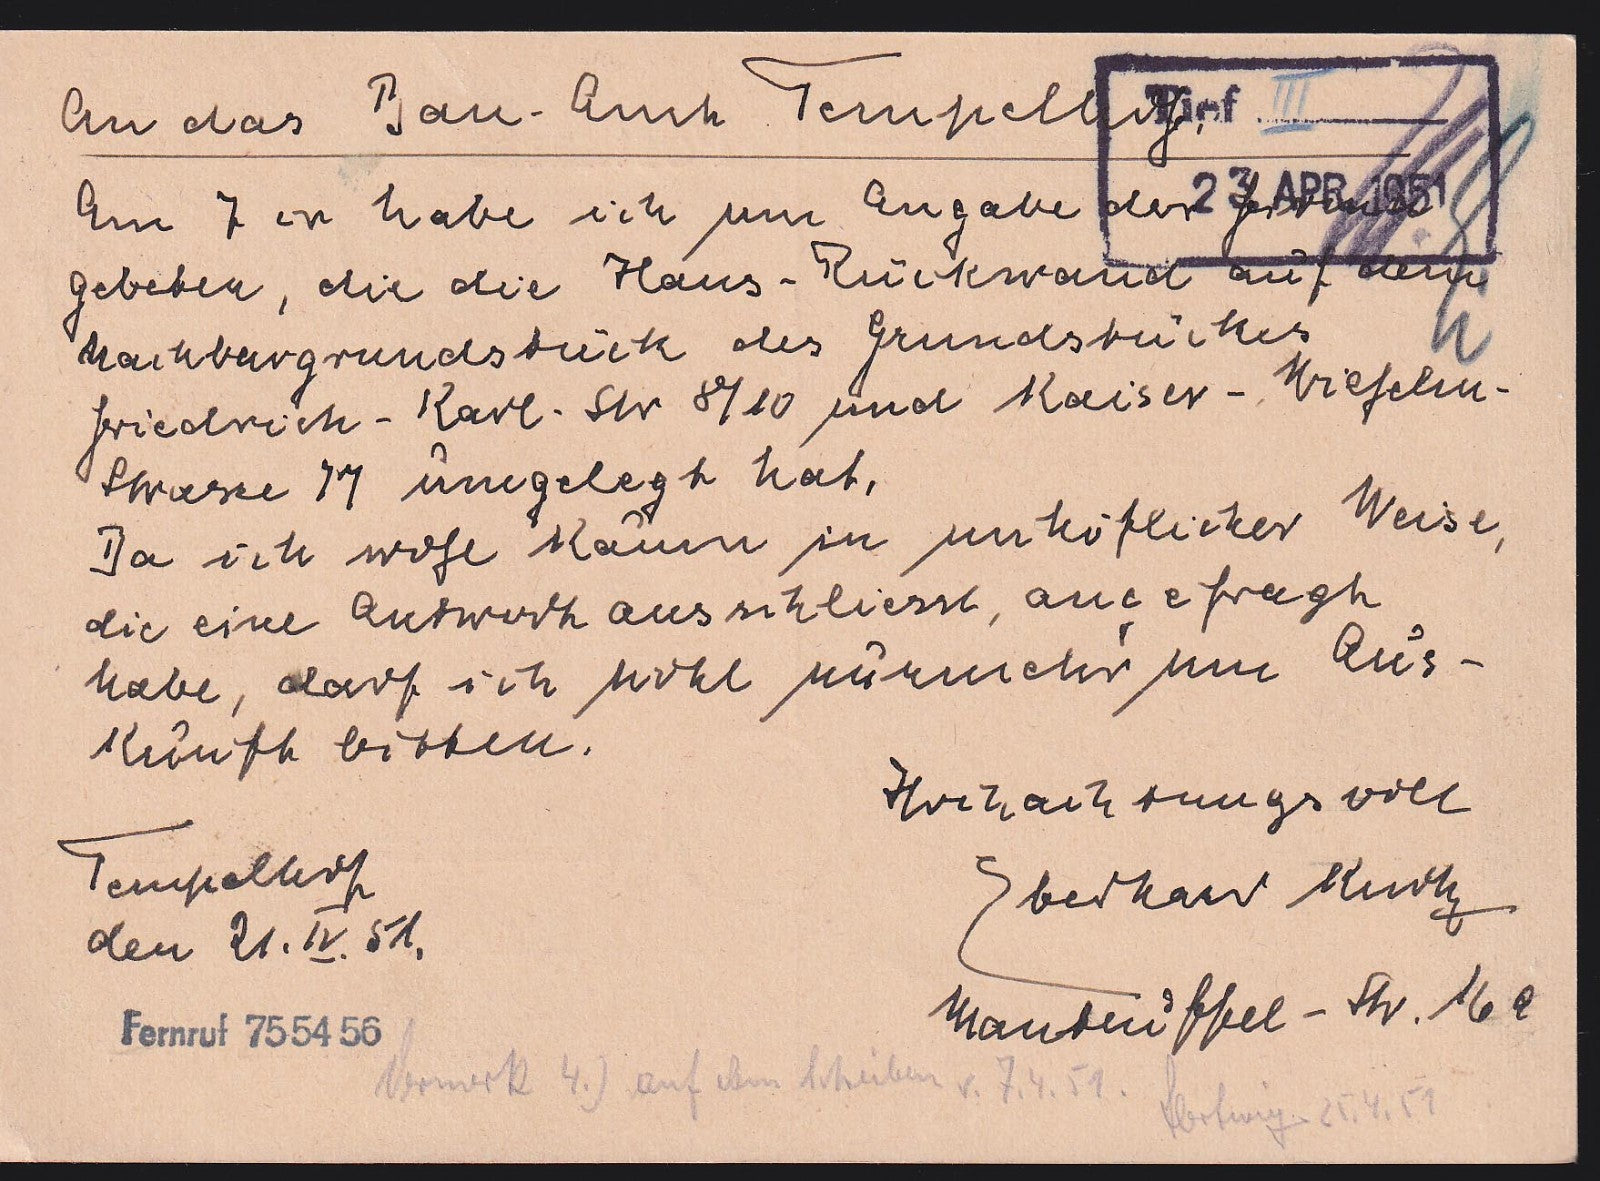 An das Bau-Amt Tempelhof.
Tief III
23. APR. 1951
Am 7 er habe ich um Angabe der Firma
gebeten, die die Haus-Rückwand auf dem
Nachbargrundstück des Grundstückes
Friedrich-Karl-Str 8/10 und Kaiser-Wilhelm-
Strasse 77 umgelegt hat.
Da ich wohl kaum in unhöflicher Weise,
die eine Antwort ausschliesst, angefragt
habe, darf ich wohl nunmehr um Aus-
kunft bitten.
Hochachtungsvoll
Tempelhof
den 21. IV. 51.
Eberhard
Manteuffel-Str. 16
Fernruf 75 54 56
Vermerk 4.) auf dem Schreiben v. 7.4.51.
25.4.51